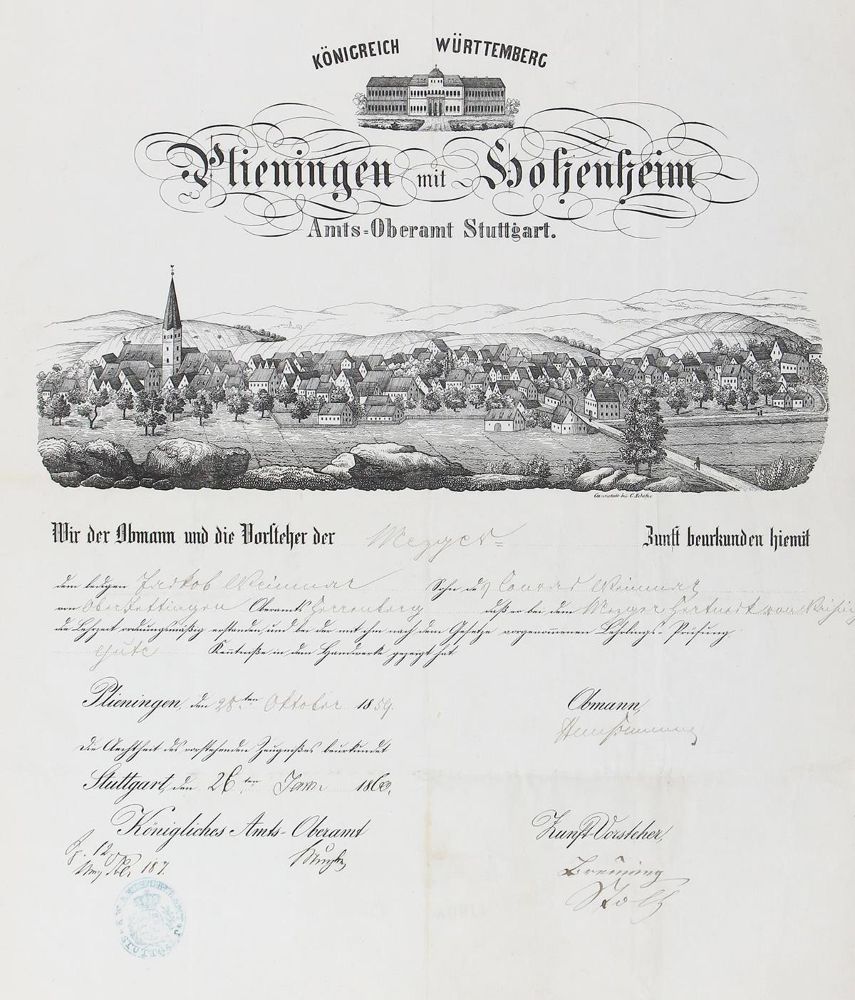 KÖNIGREICH WÜRTTEMBERG
Plieningen mit Hohenheim
Amts=Oberamt Stuttgart.
Cannstatt bei C. Schäfer
Wir der Obmann und die Vorsteher der Mezger= Zunft beurkunden hiemit
dem ledigen Jakob Weinmar Sohn des Conrad Weinmar
von Oberjettingen Oberamts Herrenberg daß er bei dem Mezger von
die Lehrzeit ordnungsmäßig erstanden, und bei der mit ihm nach dem Gesetze vorgenommenen Lehrlings=Prüfung
gute Kentniße in dem Handwerke gezeigt hat
Plieningen, den 28.ten Oktober 1859. Obmann,
die Aechtheit des vorstehenden Zeugnißes beurkundet
Stuttgart, den 26ten Jan. 1860.
Königliches Amts-Oberamt Zunft-Vorsteher,
187.
Breuning
Stoll